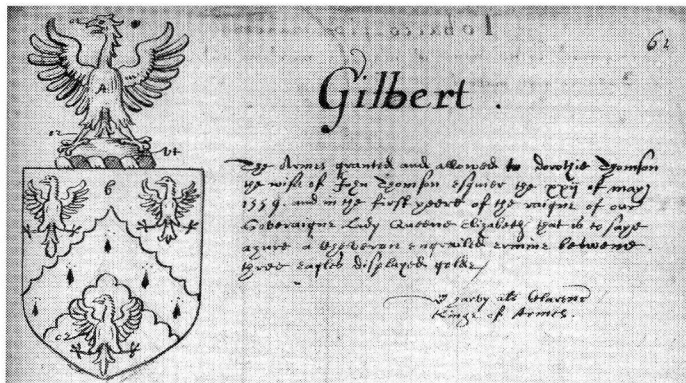 62
Gilbert .
The Armes graunted and allowed to dorothie Thomson
the wife of John Thomson esquier the xxij of may
1559. and in the first yeere of the raigne of our
Soveraigne Lady Queene Elizabeth that is to saye
azure a cheveron engrailed ermine betwene
three eagles displayed golde
W harvy als Clarenc
Kinge of Armes.
A
or
vt
B
or